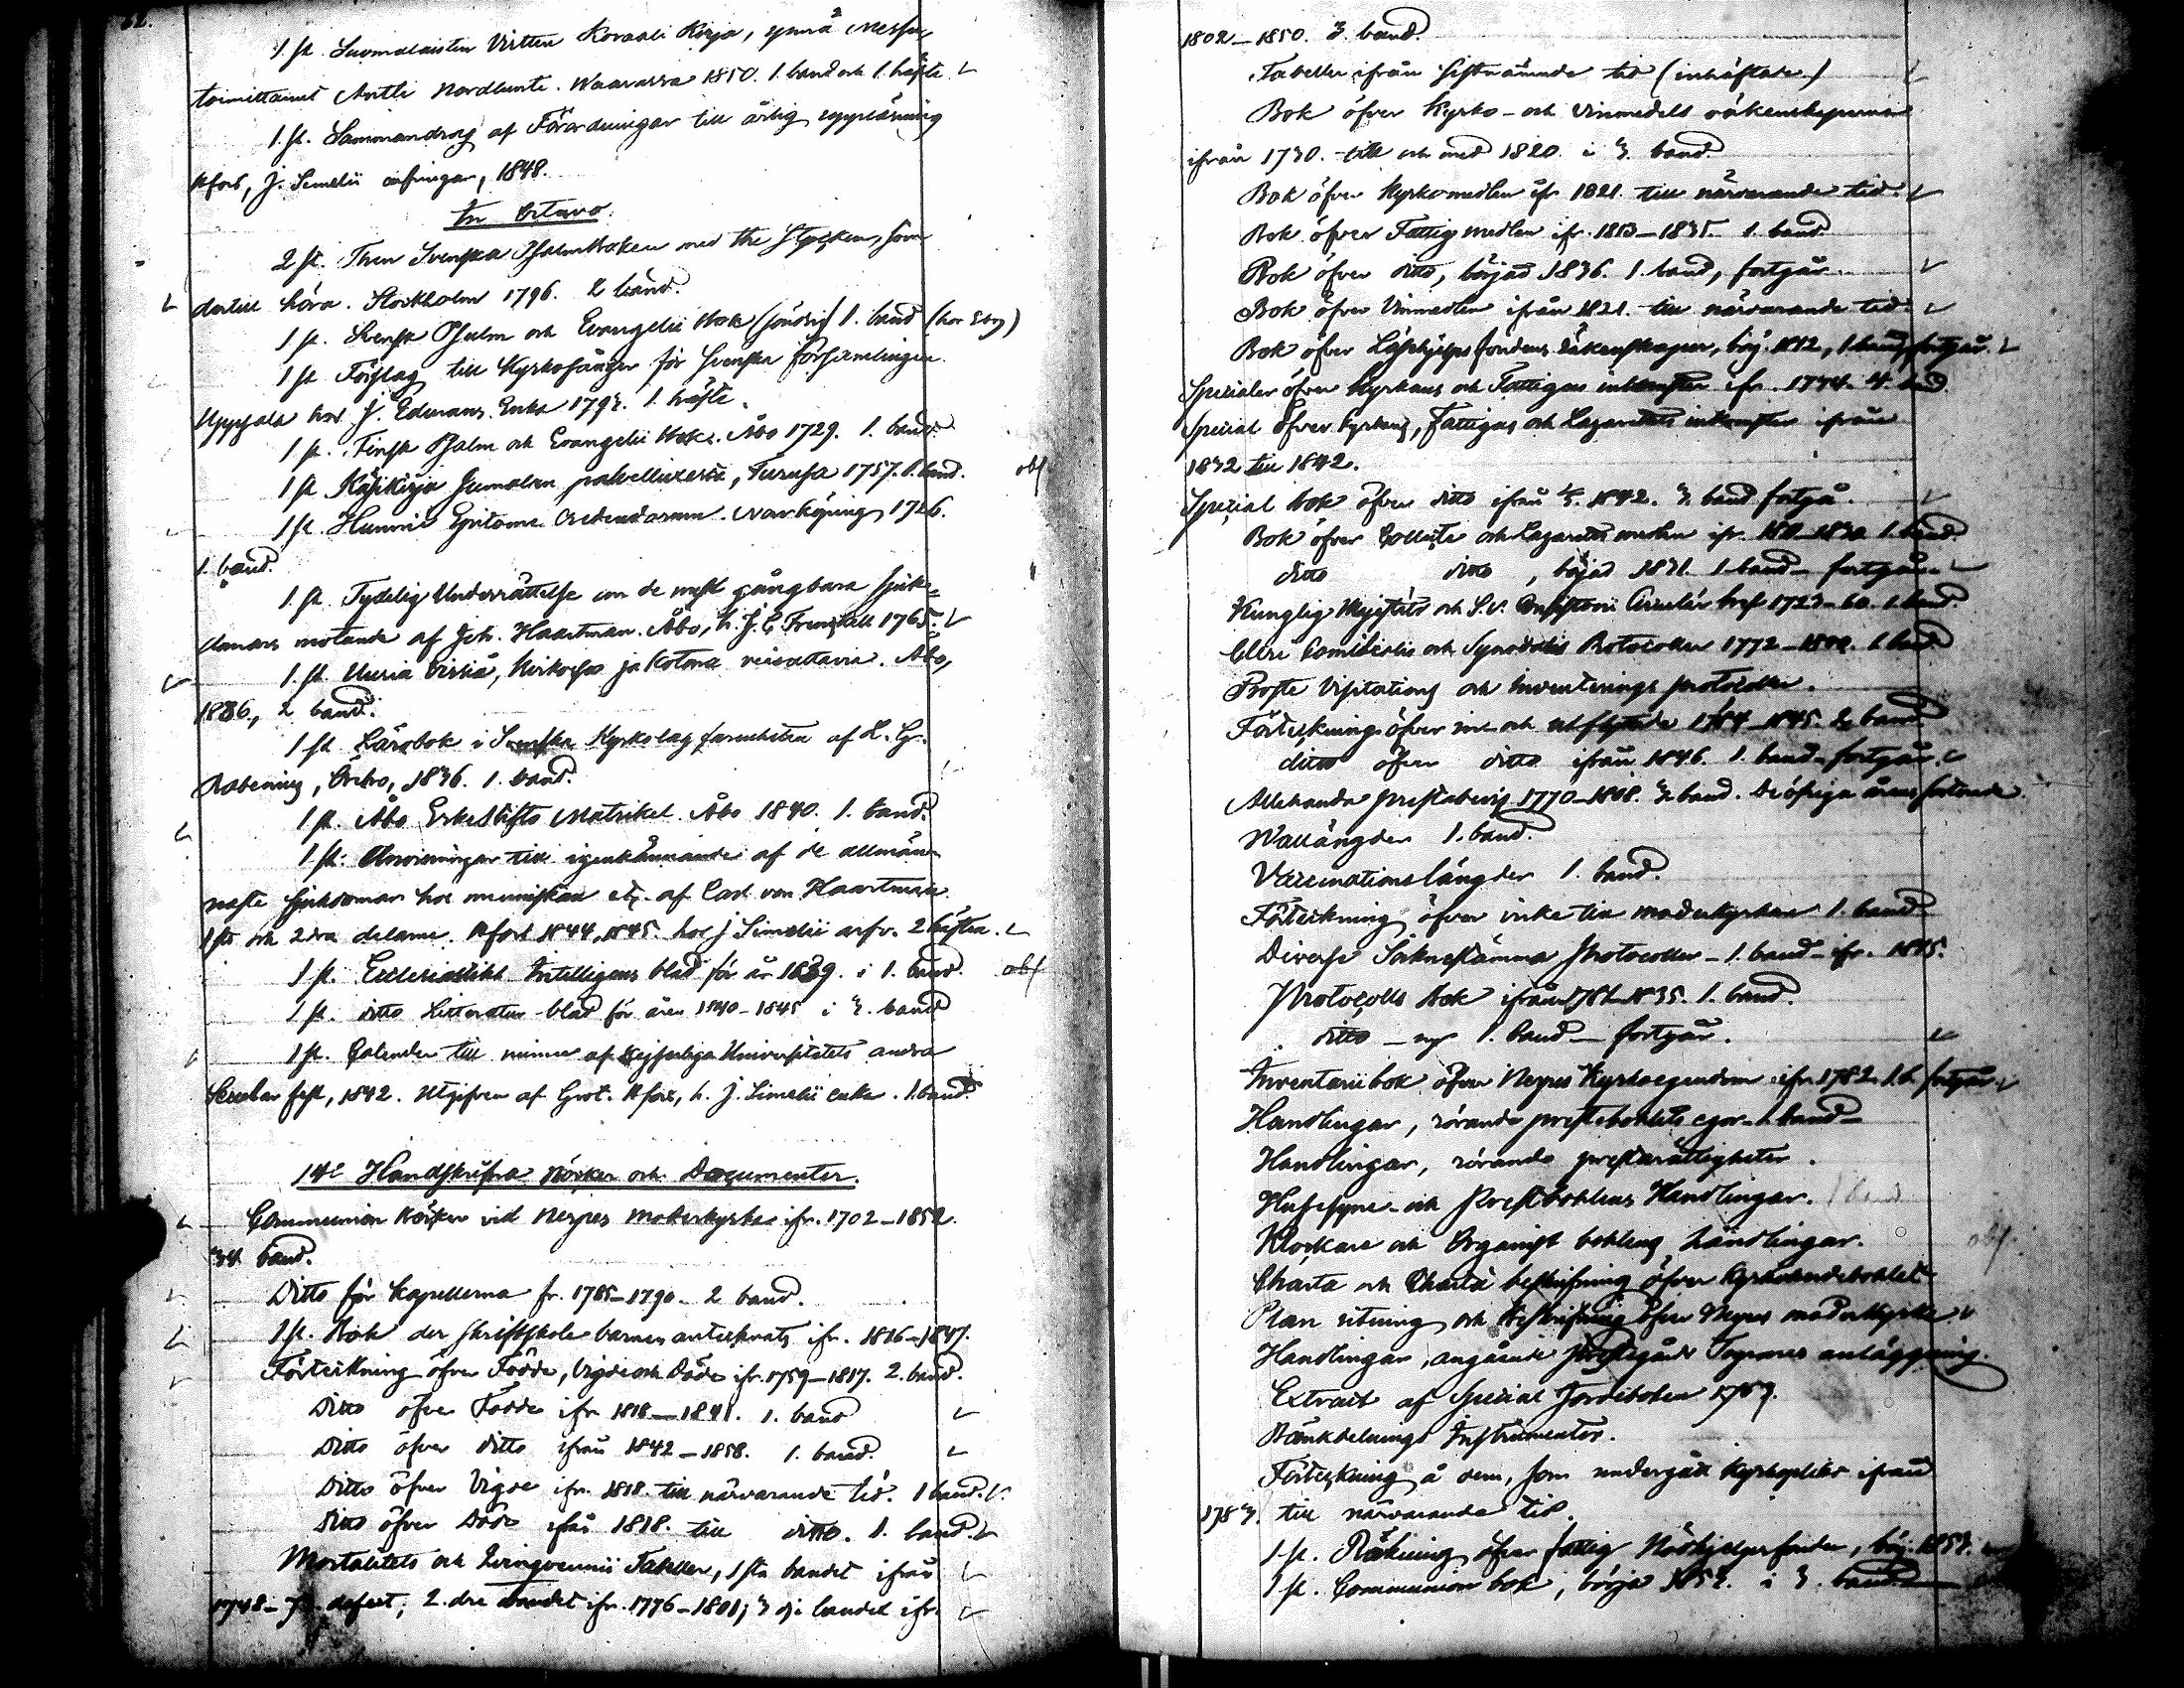 1 st. Suomalaisten Virtten Koraali Kirja, ynnä Messu,
toimittanut Antti Nordlunte. Waasassa 1850. 1. band och 1. häfte
1. st. Sammandrag af Förordningar till årlig uppläsning
Hfors, J. Simelii arfvingar, 1848.
In Octavo.
2 st. Then Svenska Psalmboken med the Stycken, som
dertill höra. Stockholm 1796. 2 band.
1 st. Svensk Psalm och Evangelii Bok (söndrig) 1. band
1 st. Förslag till Kyrkosånger för Svenska församlingen.
Uppsala hos J. Edmans Enka 1793. 1. häfte.
1 st. Finsk Psalm och Evangelii Bok. Åbo 1729. 1. band.
1 st Käsikirja Jumalan palvelluxesta, Turusa 1757. 1. band.
1 st. Hunnii Epitome Credendorum. Norrköping 1726.
1. band.
1. st. Tydelig Underrättelse om de mest gångbara sjuk-
domars motande af Joh. Haartman. Åbo, h. J. C. Frenckell 1765.
1. st. Uusia Virsiä, Kirkossa ja Kotona veisattavia. Åbo,
1836, 2 band.
1 st Lärobok i Svenska Kyrkolagfarenheten af L. G.
Rabenius, Örebro, 1836. 1. band.
1 st. Åbo Erkestifts Matrikel. Åbo 1840. 1. band.
1 st. Anvisningar till igenkännande af de allmän-
naste sjukdomar hos menniskan etc. af Carl von Haartman
1sta och 2dra delarne. Hfors 1844, 1845. hos J Simelii arfv. 2 häften.
1 st. Ecclesiastikt Intelligens blad för år 1839. i 1. band. obs
1 st. ditto Litteratur-blad för åren 1840-1845 i 3. band
1 st. Calender till minne af Kejserliga Universitetets andra
Secular fest, 1842. Utgifven af Grot. Hfors, h. J. Simelii enka. 1. band
14: Handskrifna Böcker och Documenter.
Communion Böcker vid Nerpes Moderkyrka ifr. 1702-1852.
34 band.
Ditto för Kapellerna fr. 1785-1790. 2 band.
1 st. Bok der Skriftskolebarnen antecknats ifr. 1816-1847.
Förteckning öfver Födde, Vigde och Döde ifr. 1759-1817. 2. band.
Ditto öfver Födde ifr 1818-1841. 1. band
Ditto öfver ditto ifrån 1842-1858. 1. band.
Ditto öfver Vigde ifr. 1818. till närvarande tid. 1 band.
Ditto öfver Döde ifrån 1818. till ditto. 1. band.
Mortalitets och Tabeller, 1 sta bandet ifrån
1748- defect; 2. dra bandet ifr. 1776-1801; 3 dje bandet ifr.
1802-1850. 3. band.
Tabeller ifrån sistnämnde tid (inhäftade)
Bok öfver Kyrko- och Vinmedels räkenskaperna
ifrån 1730. till och med 1820. i 3. band.
Bok öfver Kyrkomedlen ifr 1821. till närvarande tid.
Bok öfver Fattigmedlen ifr. 1813-1835. 1. band
Bok öfver ditto, börjad 1836. 1. band, fortgår.
Bok öfver Vinmedlen ifrån 1821. till närvarande tid.
Bok öfver fondens Räkenskaper, börj. 1812, 1. band, fortgår.
Specialer öfver Kyrkans och Fattigas inkomster ifr. 1774. 4. band.
Special öfver Kyrkans, Fattigas och Lazarettets inkomster ifrån
1832 till 1842.
Special bok öfver ditto ifrån 1842. 3. band fortgå.
Bok öfver Collecte och Lazaretts medlen ifr. 1811-1830 1. band.
ditto ditto, börjad 1831. 1 band- fortgår.
Kunglig Majestäts och S. V. Consistorii Circulär bref 1723-60. 1. band.
Cleri Comitialis och Synodalis Protocoller 1772-1800. 1. band
Proste Visitations och Inventerings protocoller.
Förteckning öfver in och utflyttade 1784-1845. 2. band
ditto öfver ditto ifrån 1846. 1. band- fortgår.
Allehanda prestabevis 1770-1808. 3 band. De öfriga åren
Wallängder 1. band.
Vaccinationslängder 1. band.
Förteckning öfver virke till moderkyrkan 1. band
Diverse Sockneslämma Protocoller - 1. band- ifr. 1845.
Protocolls Bok ifrån 1781-1835. 1. band.
ditto - ny 1. band - fortgår.
Inventarii bok öfver Nerpes Kyrkoegendom ifr. 1782. 1 b. fortgår
Handlingar, rörande prestebohlets egor. 1. band-
Handlingar, rörande prestarättigheter.
Husesyne- och Prestbohlens Handlingar.
Klockare och Organist bohlens handlingar.
Charta och Charta beskrifning öfver Kyrkoherdebohlet
Plan ritning och Beskrifning öfver Nerpes moderkyrka.
Handlingar, angående Prestegårds Tegnares anläggning.
Extract af Special Jordeboken 1757.
Bänkdelnings Instrumenter.
Förteckning å dem, som undergått Kyrkoplikt ifrån
1783. till närvarande tid.
1 st. Räkning öfver fattig Nödhjelpsfonden, börj. 1852.
1 st. Communion bok, börja 1852. i 3. band.